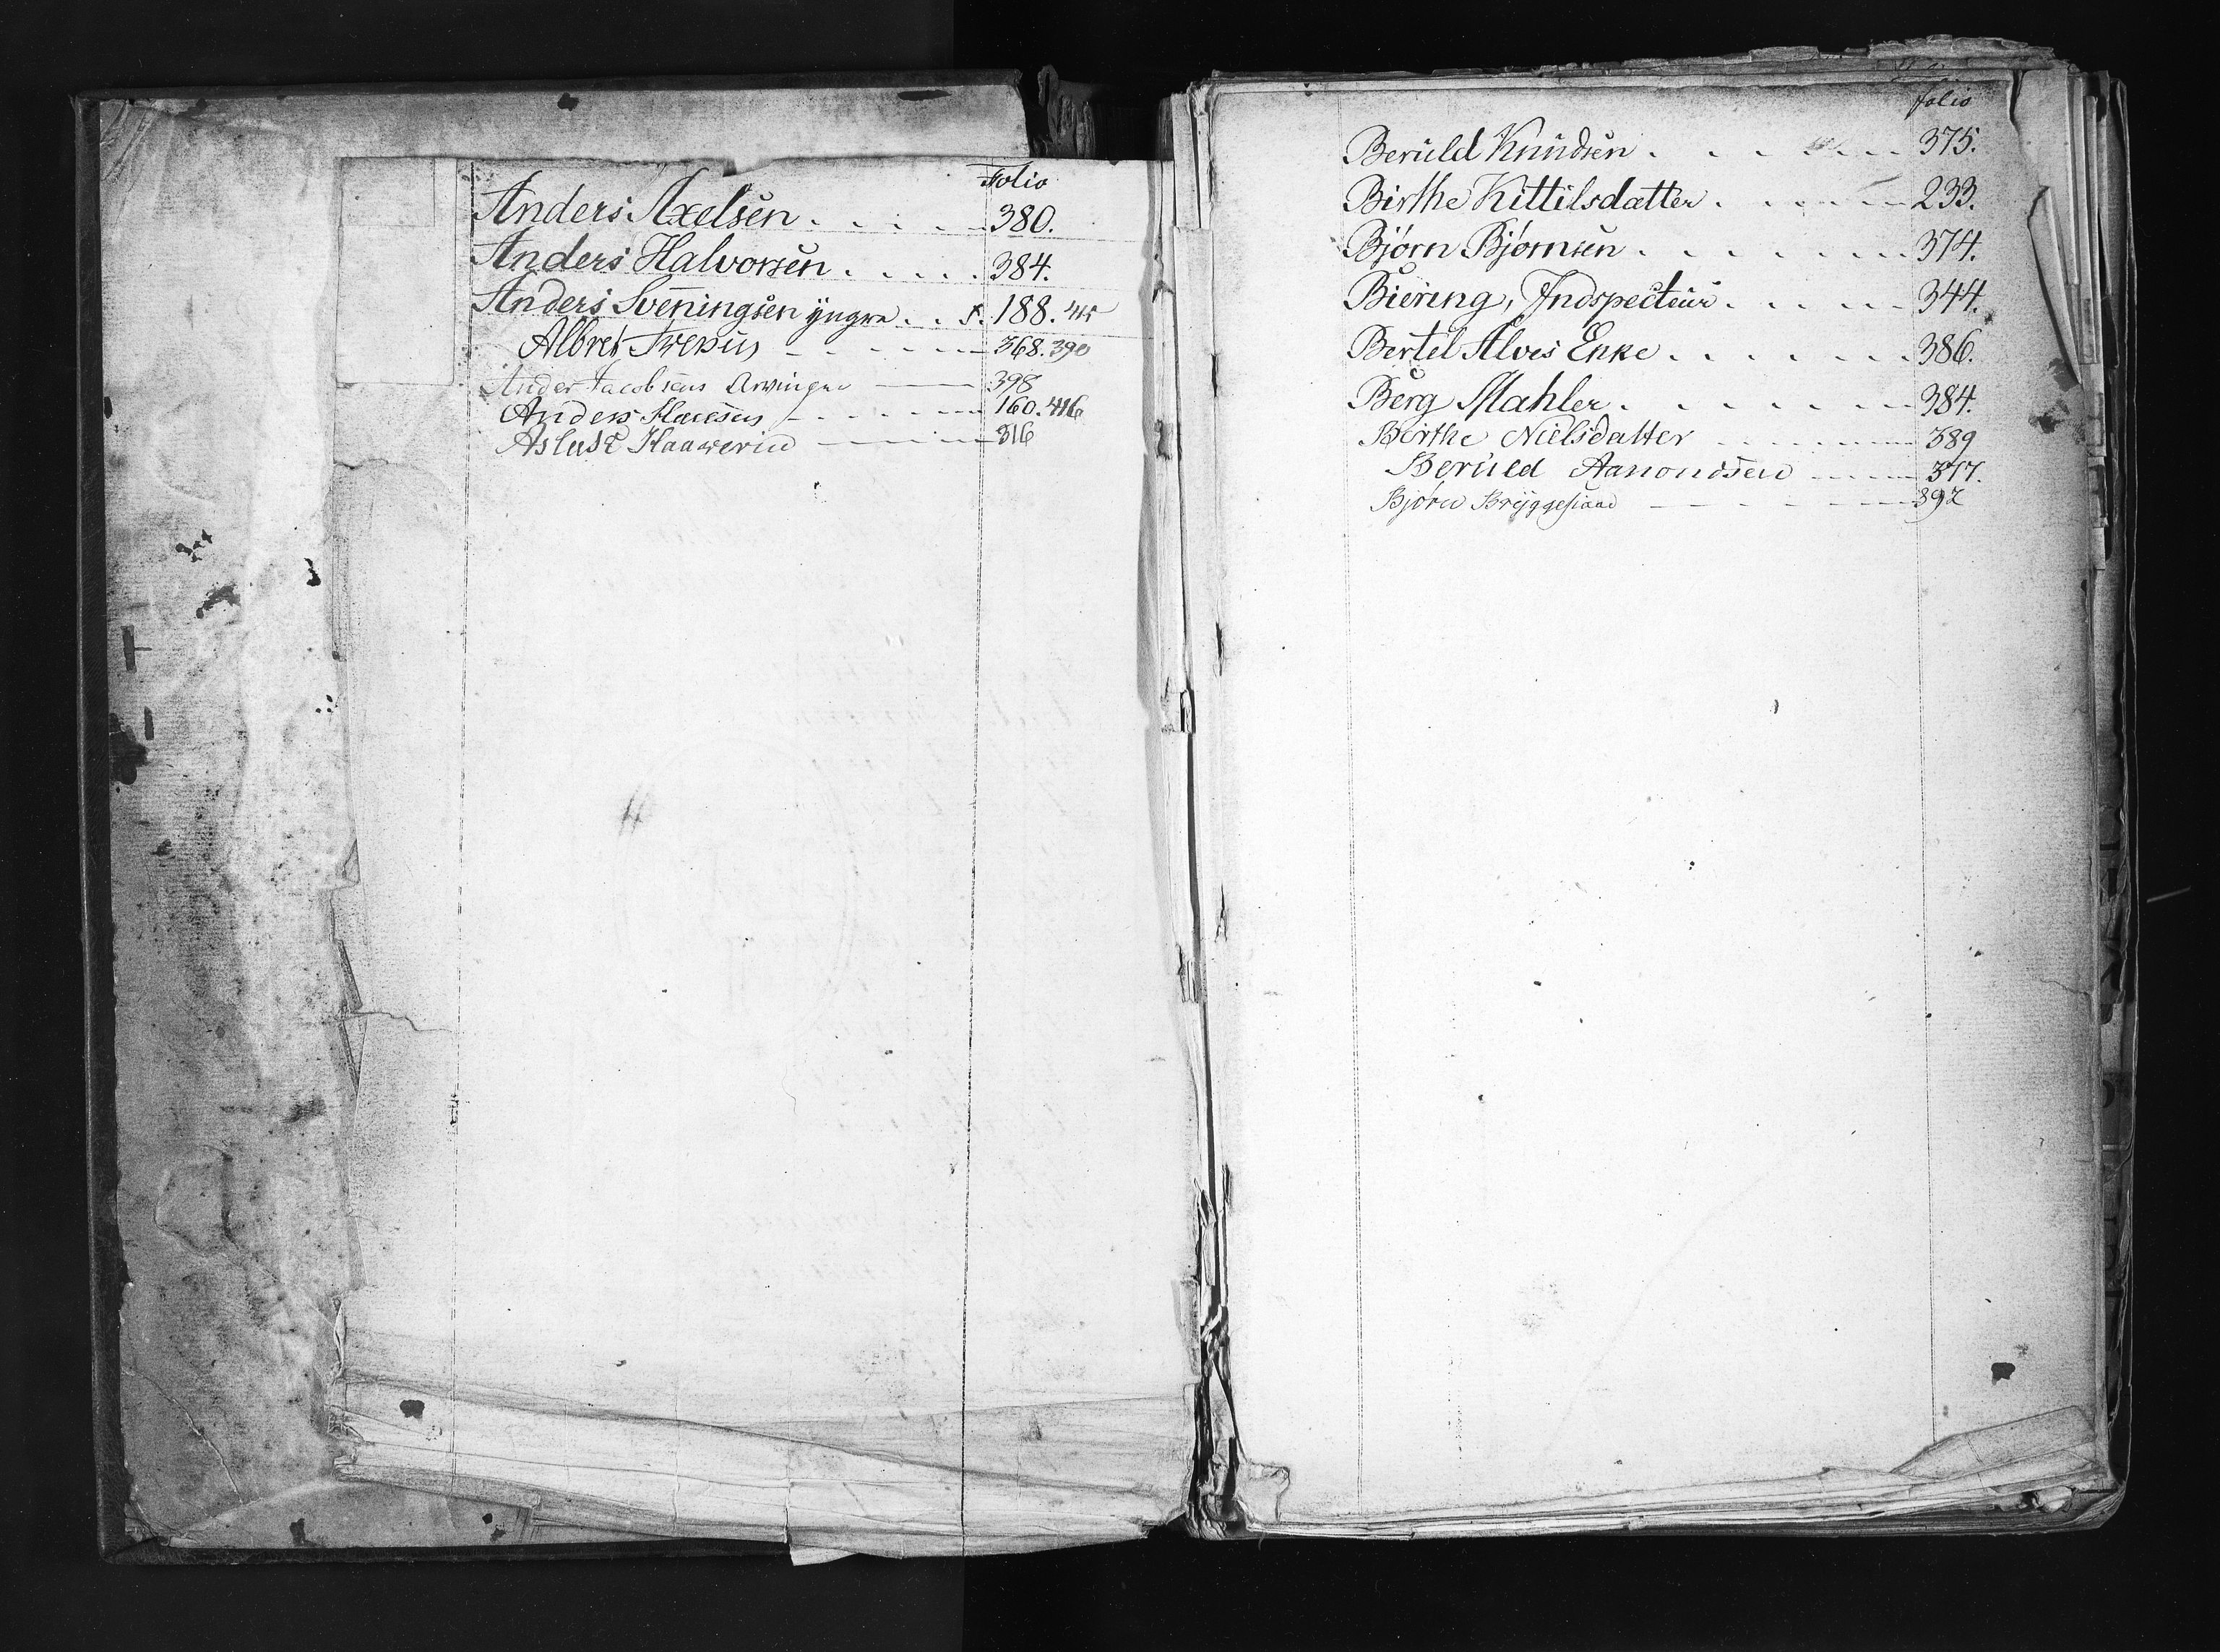 Folio
Anders Axelsen . . . . . 380.
Anders Halvorsen . . . . . 384.
Anders Sveningsen yngre . . f. 188.
Albret - - - - - 368. 390
Ander Jacobsens Arvinger — 398
Anders - - - - - 160. 416
Aslust - - - 316
folio
Beruld Knudsen . . . . . . 375.
Birthe Kittilsdatter . . . . . 233.
Bjørn Bjørnsen . . . . . . . 374.
Biering, Indspecteur . . . . . 344.
Bertel Alves Enke . . . . . . 386.
Berg Mahler . . . . . . . 384.
Birthe Nielsdatter - - - - - 389
Beruld Aamondsen - - - - 317.
Bjørn Bryggesaad - - - - - 392